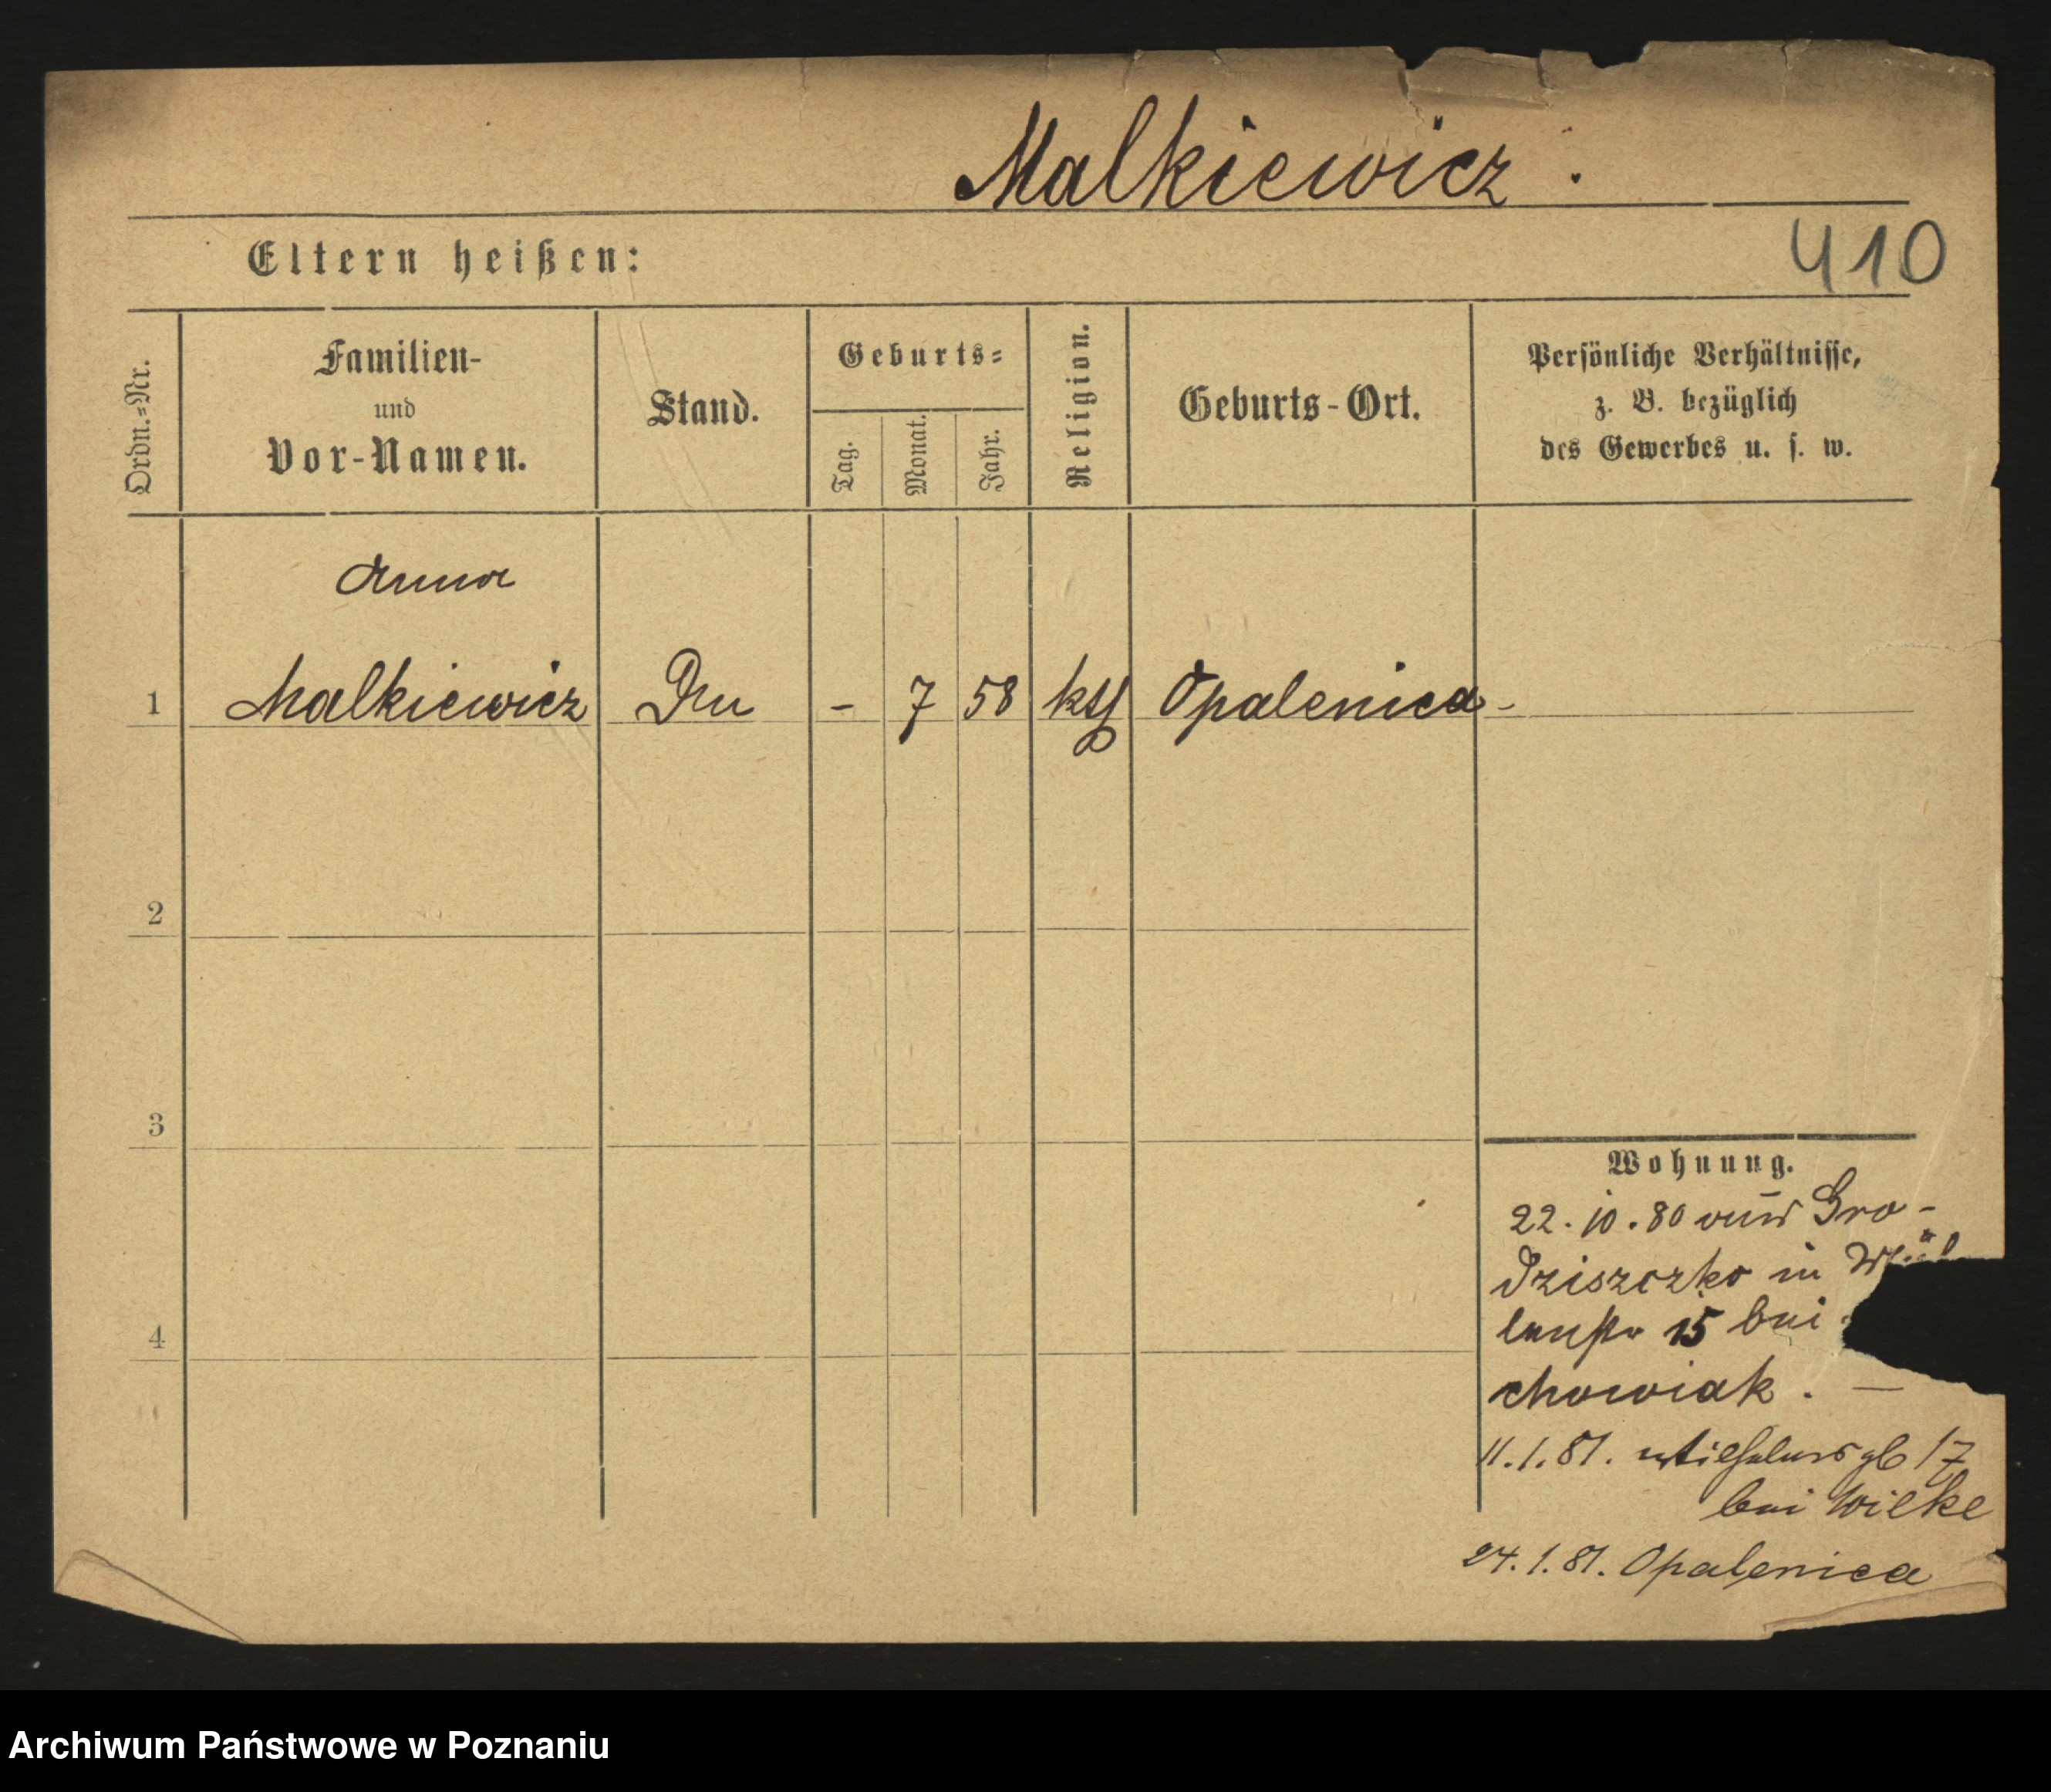 Malkiewicz.
410
Eltern heißen:
Ordn.=Nr.
Familien-
und
Vor-Namen.
Stand.
Geburts=
Tag.
Monat.
Jahr.
Religion.
Geburts-Ort.
Persönliche Verhältnisse,
z. B. bezüglich
des Gewerbes u. s. w.
Anna
1 Malkiewicz - 7 58 kth Opalenica -
2
3
4
Wohnung.
22.10.80 aus Gro-
dziszczko in
lenstr 15 bei
chowiak. —
11.1.81. 17
bei Wilke
24.1.81. Opalenica
Archiwum Państwowe w Poznaniu